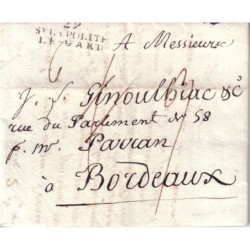 29
ST HYPOLITE
LE GARD
A Messieurs
J. J. Ginoulhiac &c
rue du Parlement No 58
p. Mr. Parran
à Bordeaux